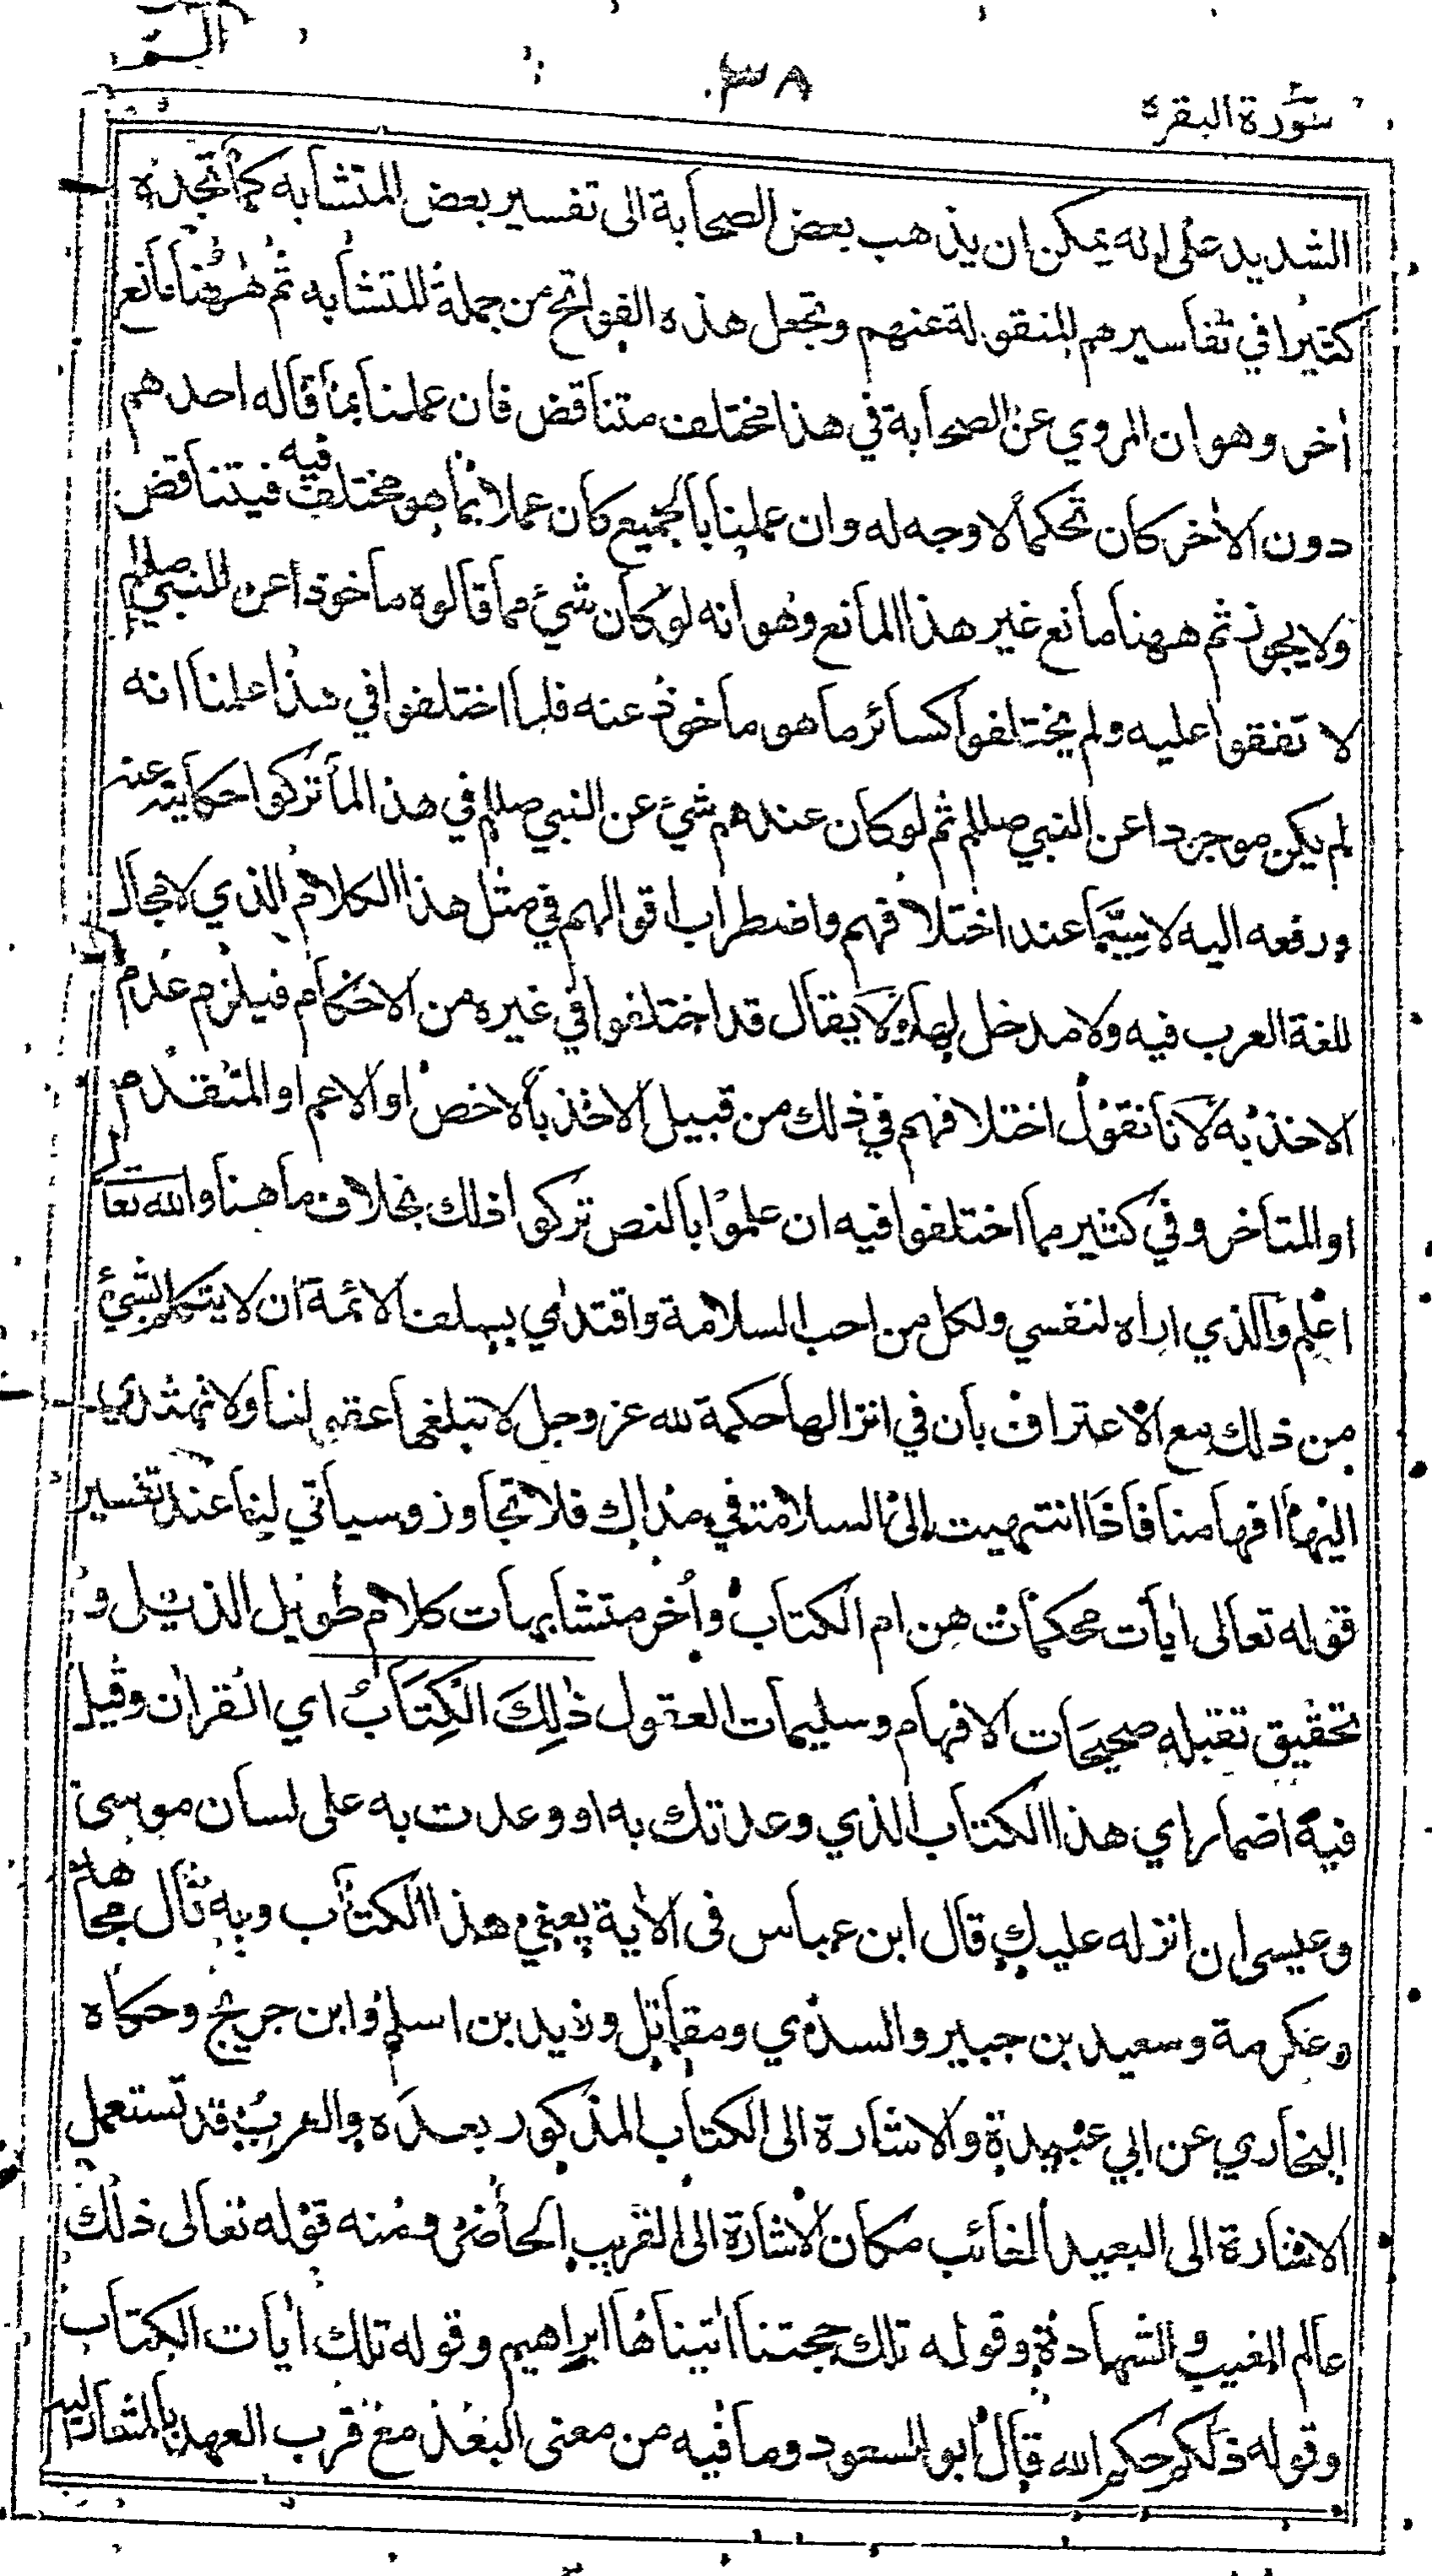 الـم
٣٨
سورة البقره
الشديد على انه يمكن ان يذهب بعض الصحابة الى تفسير بعض المتشابه كما تجده
كثيرا في تفاسيرهم المنقولة عنهم وتجعل هذه الفواتح من جملة المتشابه ثم ههنا مانع
أخر وهو ان المروي عن الصحابة في هذا مختلف متناقض فان عملنا بما قاله احدهم
دون الأخر كان تحكما لا وجه له وان عملنا بالجميع كان عملا بما هو مختلف فيه فيتناقض
ولا يجوز ثم ههنا مانع غير هذا المانع وهو انه لو كان شيء مما قالوه ماخوذا عن النبي صللم
لا تفقوا عليه ولم يختلفوا كسائر ما هو ماخوذ عنه فلما اختلفوا في هذا علمنا انه
لم يكن موجودا عن النبي صللم ثم لو كان عندهم شيء عن النبي صللم في هذا لما تركوا حكايته عنه
ورفعه اليه لا سيّما عند اختلافهم واضطراب اقوالهم في مثل هذا الكلام الذي لا مجال
للغة العرب فيه ولا مدخل لها ولا يقال قد اختلفوا في غيره من الاحكام فيلزم عدم
الاخذ به لانا نقول اختلافهم في ذلك من قبيل الاخذ بالاخص او الاعم او المتقدم
او المتاخر وفي كثير مما اختلفوا فيه ان علموا بالنص تركوا ذلك بخلاف ما هنا والله تعا
اعلم والذي اراه لنفسي ولكل من احب السلامة واقتدى بسلف الائمة ان لا يتكلم بشيء
من ذلك مع الاعتراف بان في انزالها حكمة لله عز وجل لا تبلغها عقولنا ولا تهتدي
اليها افهامنا فاذا انتهيت الى السلامة في مداك فلا تجاوز وسياتي لنا عند تفسير
قوله تعالى أيات محكمات هن ام الكتاب وأخر متشابهات كلام طويل الذيل و
تحقيق تقبله صحيحات الافهام وسليمات العقول ذٰلِكَ الْكِتَابُ اي القرأن وقيل
فيه اضمار اي هذا الكتاب الذي وعدتك به او وعدت به على لسان موسى
وعيسى ان انزله عليك قال ابن عباس فى الأية يعني هذا الكتاب وبه قال مجاهد
وعكرمة وسعيد بن جبير والسدي ومقاتل وزيد بن اسلم وابن جريج وحكاه
البخاري عن ابي عبيدة والاشارة الى الكتاب المذكور بعده والعرب قد تستعمل
الاشارة الى البعيد الغائب مكان الاشارة الى القريب الحاضر ومنه قوله تعالى ذلك
عالم الغيب والشهادة وقوله تلك حجتنا أتيناها ابراهيم وقوله تلك أيات الكتاب
وقوله ذلكم حكم الله قال ابو السعود وما فيه من معنى البعد مع قرب العهد بالمشار اليه